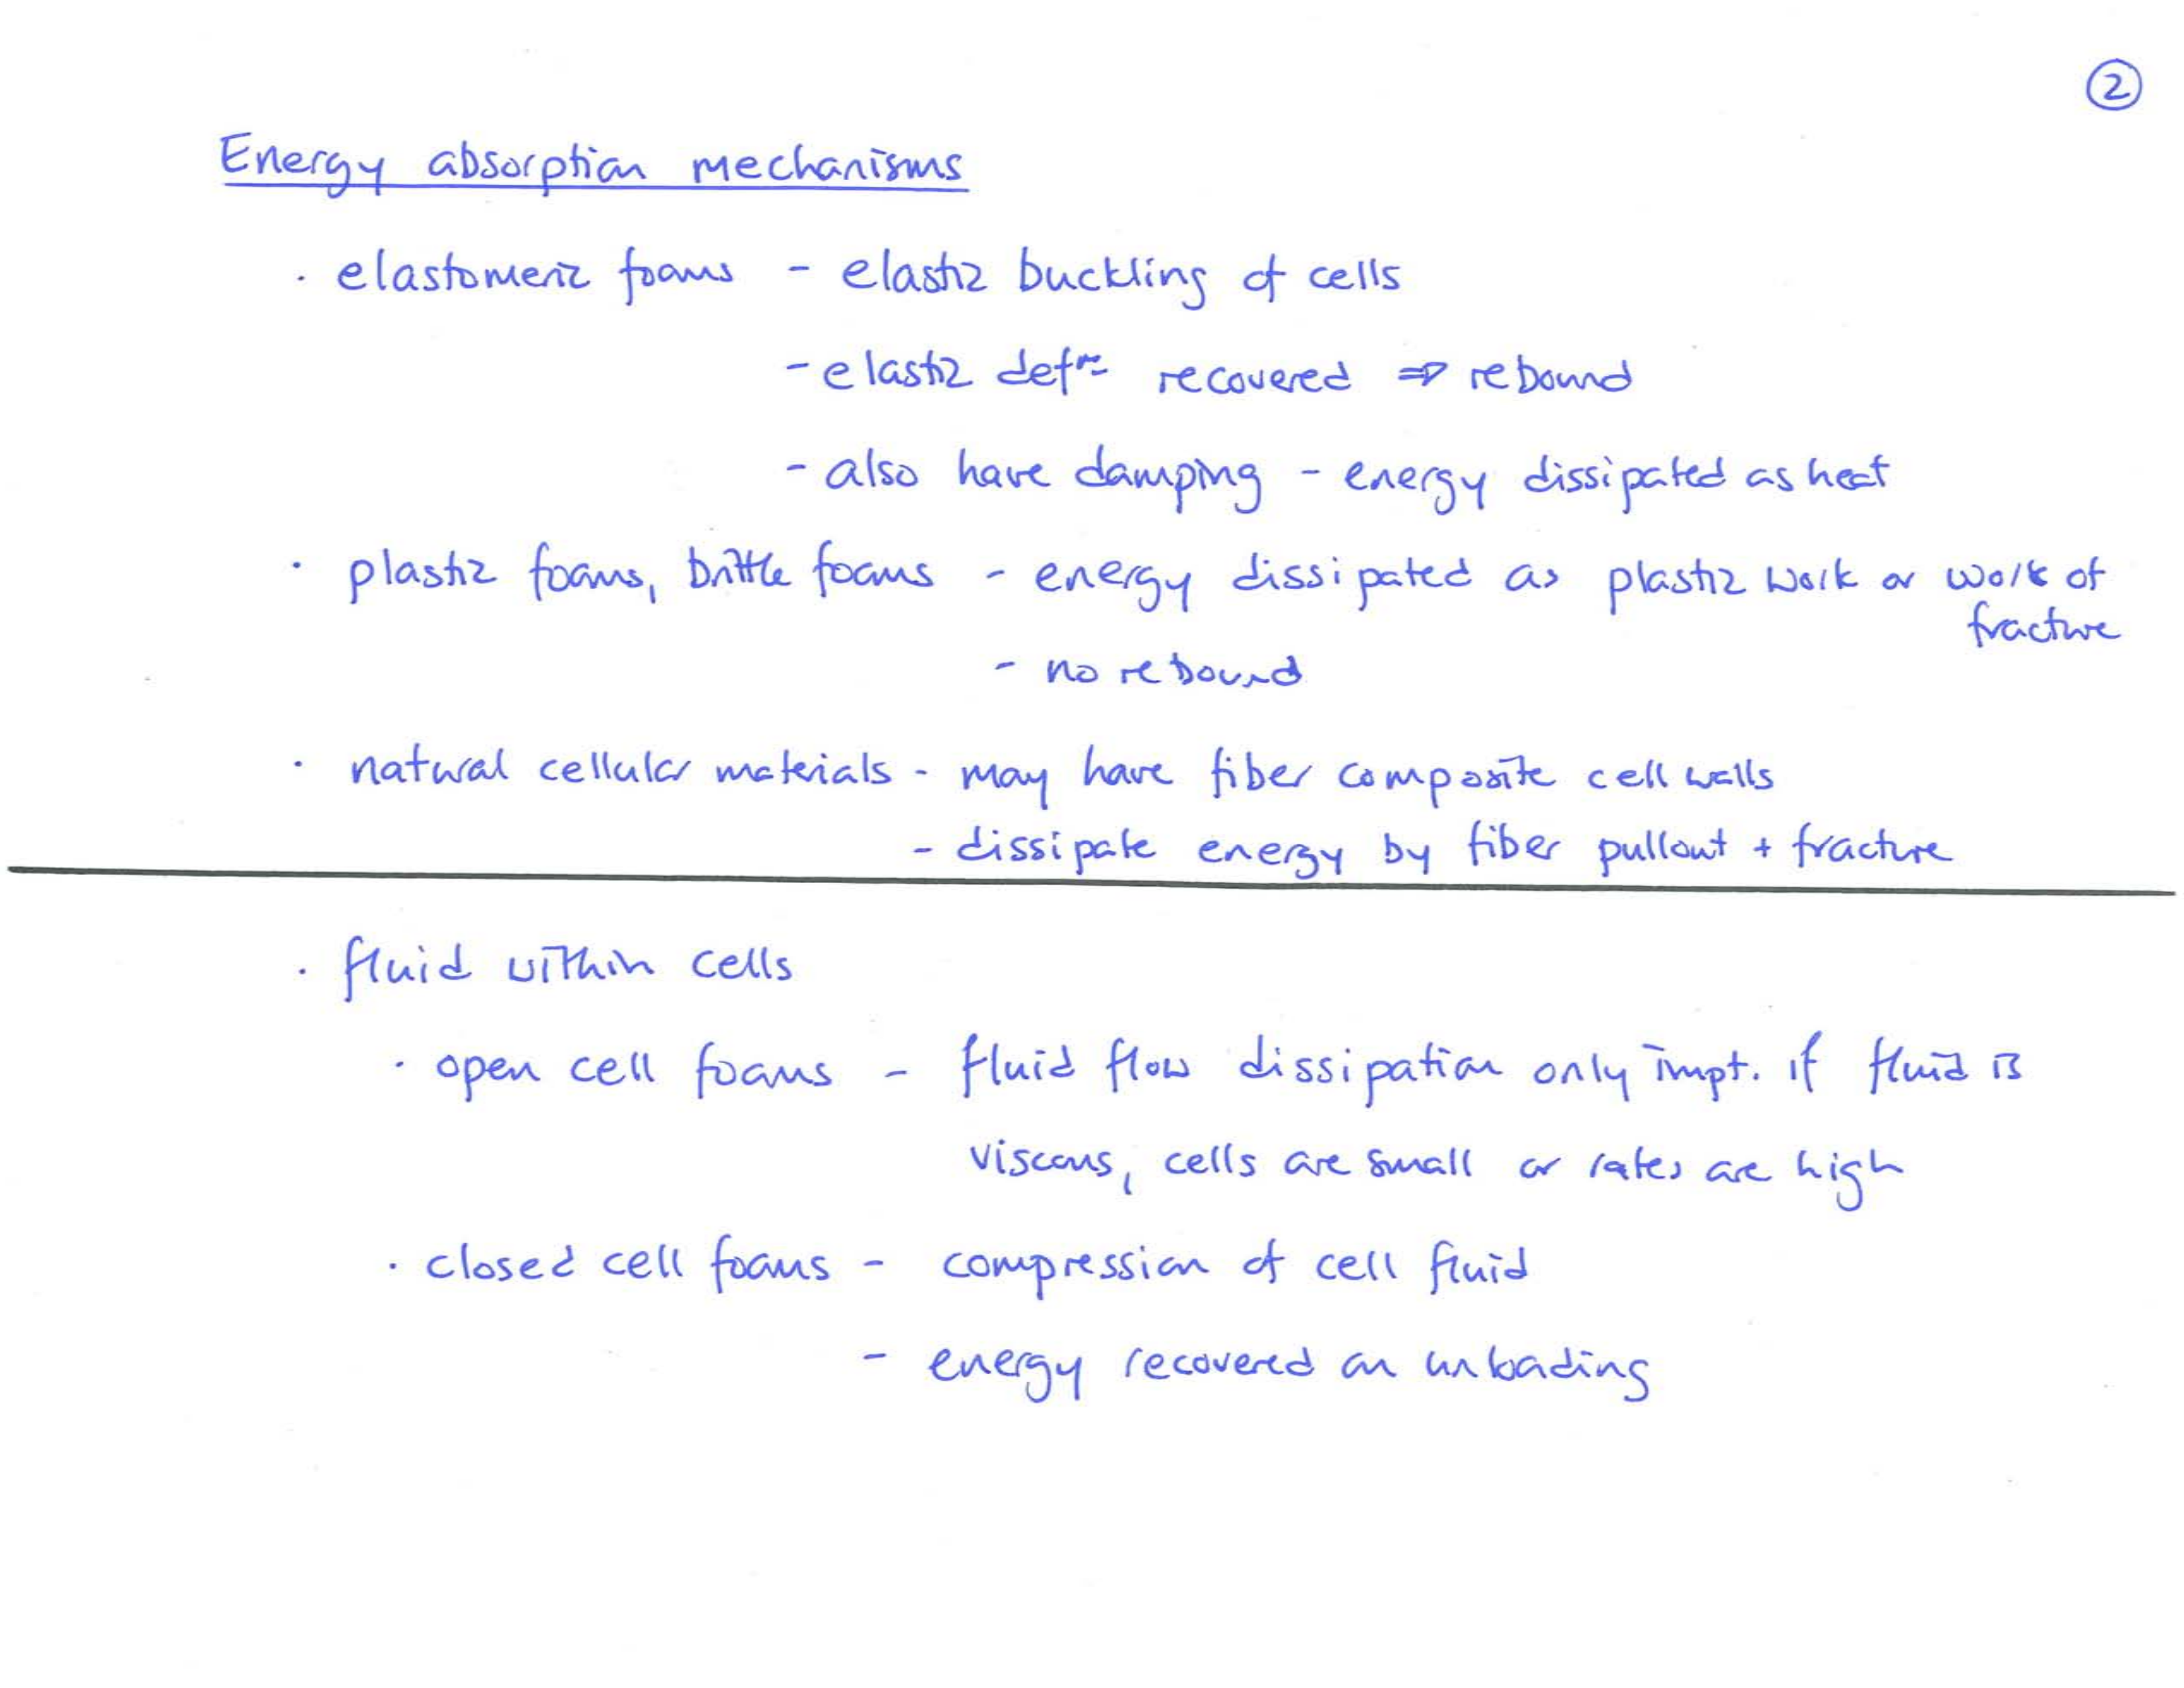 ②
Energy absorption mechanisms
· elastomeric foams - elastic buckling of cells
- elastic defⁿ recovered ⇒ rebound
- also have damping - energy dissipated as heat
· plastic foams, brittle foams - energy dissipated as plastic work or work of
fracture
- no rebound
· natural cellular materials - may have fiber composite cell walls
- dissipate energy by fiber pullout + fracture
· fluid within cells
· open cell foams - fluid flow dissipation only impt. if fluid is
viscous, cells are small or rates are high
· closed cell foams - compression of cell fluid
- energy recovered on unloading